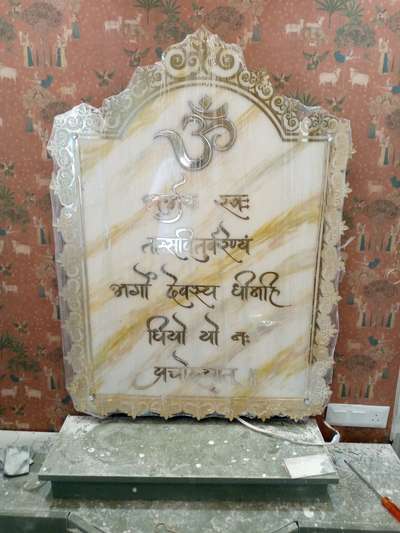 ॐ
भूर्भुवः स्वः
तत्सवितुर्वरेण्यं
भर्गो देवस्य धीमहि
धियो यो नः
प्रचोदयात् ॥